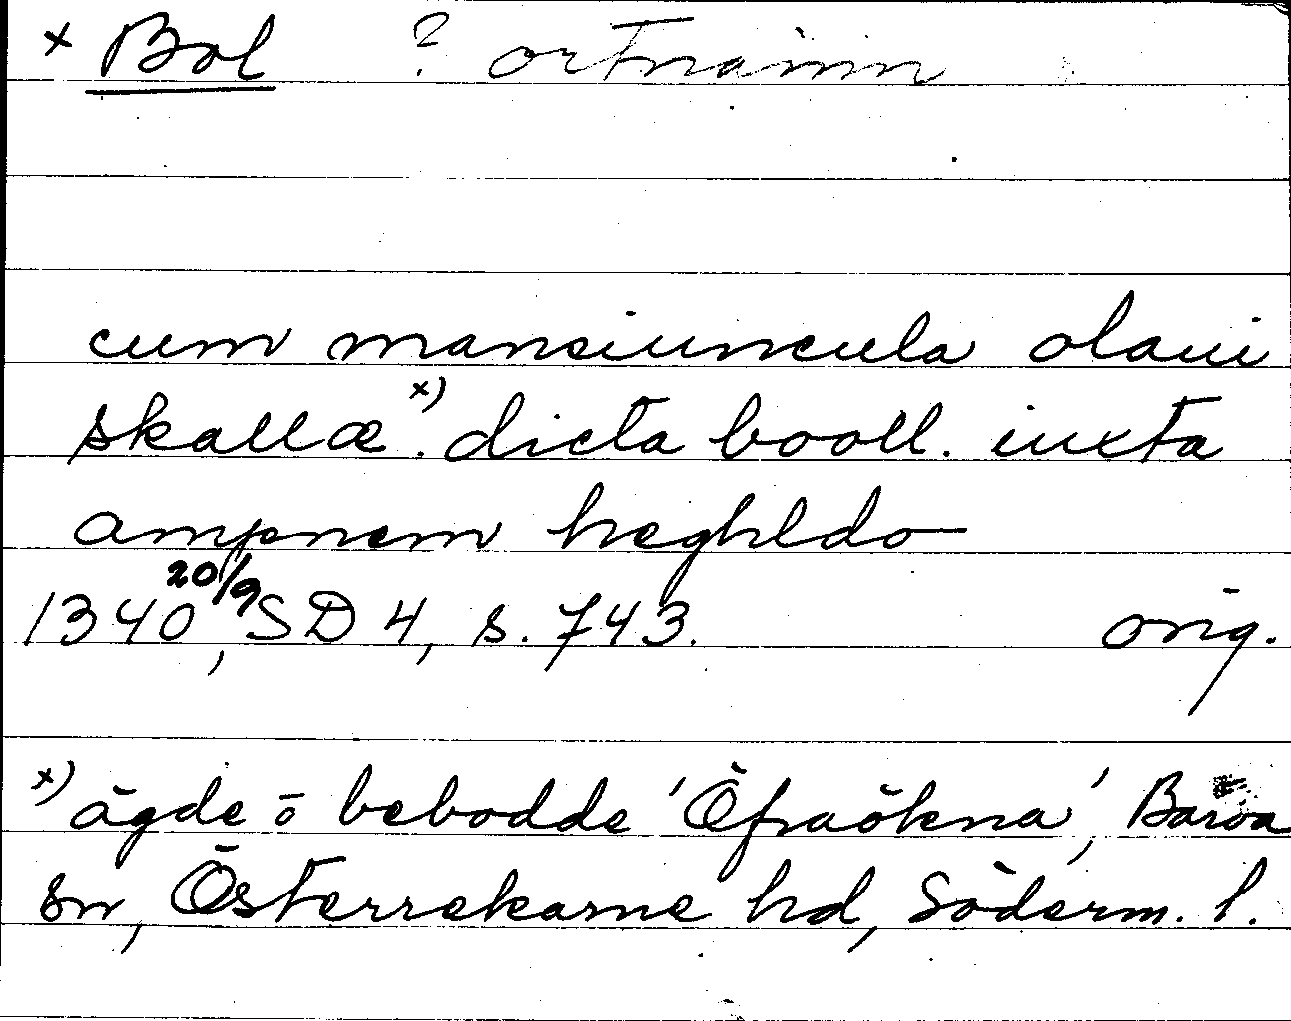 × Bol ? ortnamn
cum mansiuncula olaui
skallæ ×). dicta booll. iuxta
ampnem heghldo
1340 20/9, SD 4, s. 743. orig.
×) ägde o bebodde 'Öfraökna', Barva
sn, Österrekarne hd, Söderm. l.